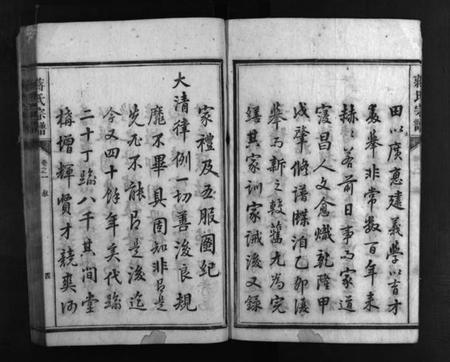 蔣氏宗譜
田以廣惠建義學以育才
義舉非常數百年來
赫赫若前日事而家道
寖昌人文愈熾乾隆甲
戌肇修譜牒洎乙卯復
舉而新之較舊尤為完
繕其家訓家誡後又錄
家禮及五服圖紀
大清律例一切善後良規
靡不畢具固知非呂是
先死不能呂是後迄
今又四十餘年矣代踰
二十丁踰八千其間堂
構增輝賢才競爽洵
蔣氏宗譜
卷之一
敘
四